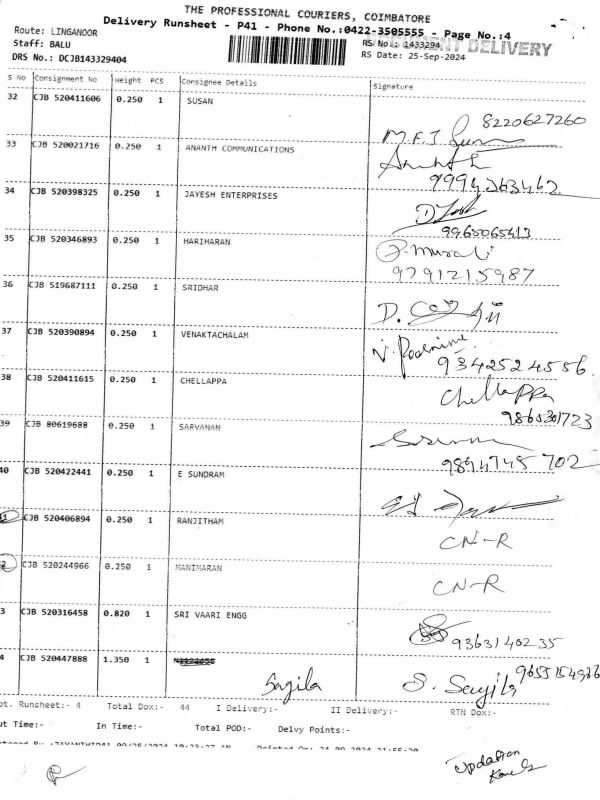 THE PROFESSIONAL COURIERS, COIMBATORE
Delivery Runsheet - P41 - Phone No.:0422-3505555 - Page No.:4
Route: LINGANOOR
Staff: BALU RS No.: 1433294 DELIVERY
DRS No.: DCJB143329404 RS Date: 25-Sep-2024
S No Consignment No Weight PCS Consignee Details Signature
32 CJB 520411606 0.250 1 SUSAN 8220627260
33 CJB 520021716 0.250 1 ANANTH COMMUNICATIONS 9994263462
34 CJB 520398325 0.250 1 JAYESH ENTERPRISES 9965065613
35 CJB 520346893 0.250 1 HARIHARAN P. Murali 9791215987
36 CJB 519687111 0.250 1 SRIDHAR
37 CJB 520390894 0.250 1 VENAKTACHALAM 9342524556
38 CJB 520411615 0.250 1 CHELLAPPA Chellappa 9865301723
39 CJB 80619688 0.250 1 SARVANAN 9894745 702
40 CJB 520422441 0.250 1 E SUNDRAM
1 CJB 520406894 0.250 1 RANJITHAM CN-R
2 CJB 520244966 0.250 1 MANIMARAN CN-R
3 CJB 520316458 0.820 1 SRI VAARI ENGG 9363140235
4 CJB 520447888 1.350 1 Sagila S. Sagila
ot. Runsheet:- 4 Total Dox:- 44 I Delivery:- II Delivery:- RTN Dox:-
ut Time:- In Time:- Total POD:- Delvy Points:-
Updation